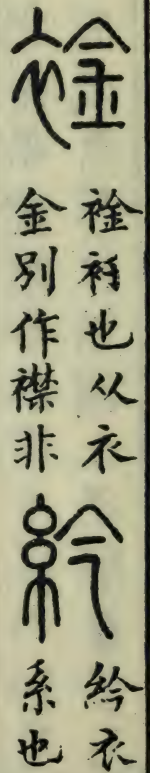 䘳
䘳衽也从衣
金別作襟非
紟
紟衣
系也